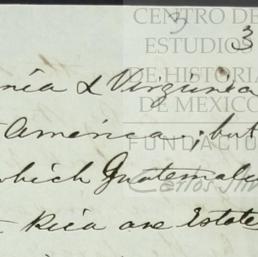 CENTRO DE
ESTUDIOS
DE HISTORIA
DE MEXICO
FUNDACIÓN
Carlos
3
3
nia & Virginia
America; but
which Guatemala
Rica are Estate